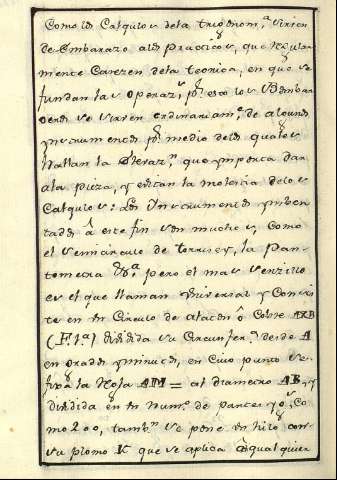 Como los Calqulos dela trigonom.ª Sirven
de Embarazo alos Practicos, que regular
mente Carezen dela teorica, en que se
fundan las Operaz.s p.r esto los Bombar
deros se sirven ordinariam.te de algunos
ynstrumentos p.r medio delos quales
hallan la Elevaz.n que ymporta dar
ala pieza, y evitan la molestia delos
Calqulos: Los Ynstrumentos ynben
tados â este fin son muchos, Como
el Semicirculo de torrisely, la Pan
tometra &.ª pero el mas Senzillo
es el que llaman Vniversal y Consis
te en un Circulo de alaton ô Cobre AXB
(F.1.ª) dividida su Circunfer.a desde A
en grados y minutos, en Cuio punto se
fixa la Regla AM = al diametro AB, y
dividida en un Num.o de partes yg.s, Co
mo 200, tamb.n se pone un hilo con
su plomo K que se aplica â qualquier